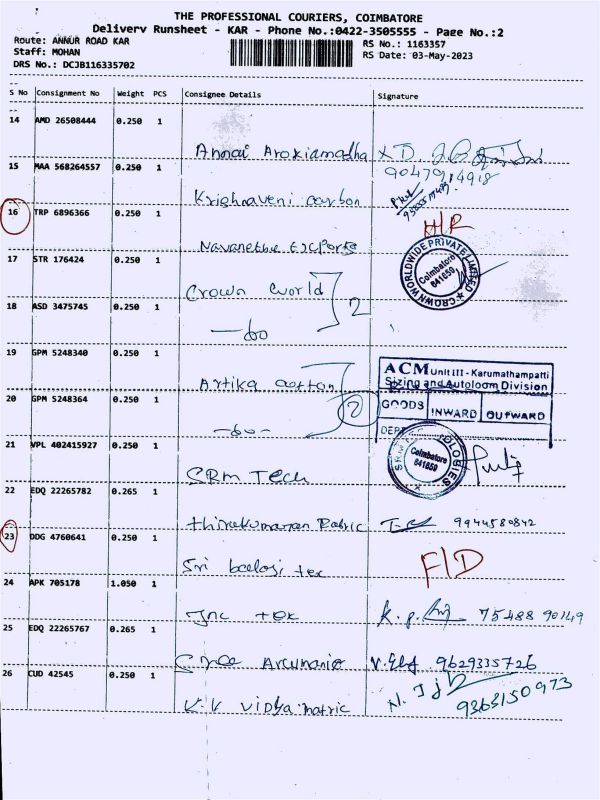 THE PROFESSIONAL COURIERS, COIMBATORE
Delivery Runsheet - KAR - Phone No.:0422-3505555 - Page No.:2
Route: ANNUR ROAD KAR
RS No.: 1163357
Staff: MOHAN
RS Date: 03-May-2023
DRS No.: DCJB116335702
S No Consignment No Weight PCS Consignee Details Signature
14 AMD 26508444 0.250 1
Annai Arokiamadha X D.
9047914918
15 MAA 568264557 0.250 1
Krishnaveni carbon
16 TRP 6896366 0.250 1
H/R
Navaneethe Exports
17 STR 176424 0.250 1
CROWN WORLDWIDE PRIVATE LIMITED
Coimbatore
641659
Crown world 2
18 ASD 3475745 0.250 1
-do
19 GPM 5248340 0.250 1
Artika cotton
ACM Unit III - Karumathampatti
Sizing and Autoloom Division
20 GPM 5248364 0.250 1
2
GOODS INWARD OUTWARD
-do-
DEPT
21 VPL 402415927 0.250 1
Coimbatore
641659
SRM Tech
22 EDQ 22265782 0.265 1
thirukumaran Fabric 9944580842
23 DDG 4760641 0.250 1
Sri balaji tex F/D
24 APK 705178 1.050 1
Jnc tex K.P. 75488 90149
25 EDQ 22265767 0.265 1
9629335726
26 CUD 42545 0.250 1
K.V vidhya matric 9363150973